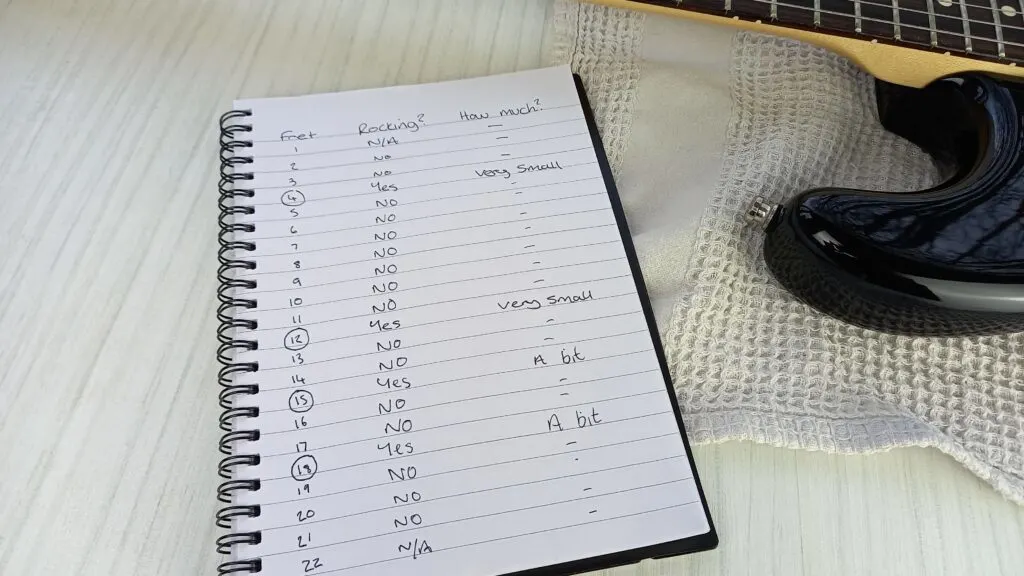 Fret Rocking? How much?
1 N/A –
2 NO –
3 NO –
4 Yes very small
5 NO –
6 NO –
7 NO –
8 NO –
9 NO –
10 NO –
11 NO –
12 Yes very small
13 NO –
14 NO –
15 Yes A bit
16 NO –
17 NO –
18 Yes A bit
19 NO –
20 NO –
21 NO –
22 N/A –